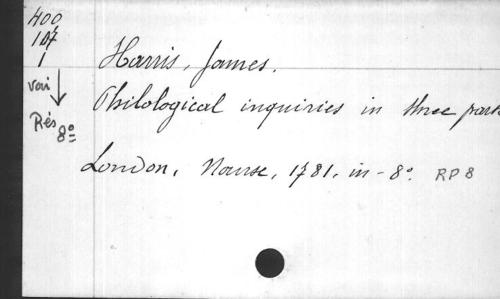 400
107
1
Harris, James.
voir
Philological inquiries in three parts
Rés 8º
London, Nourse, 1781. in-8º. RP8